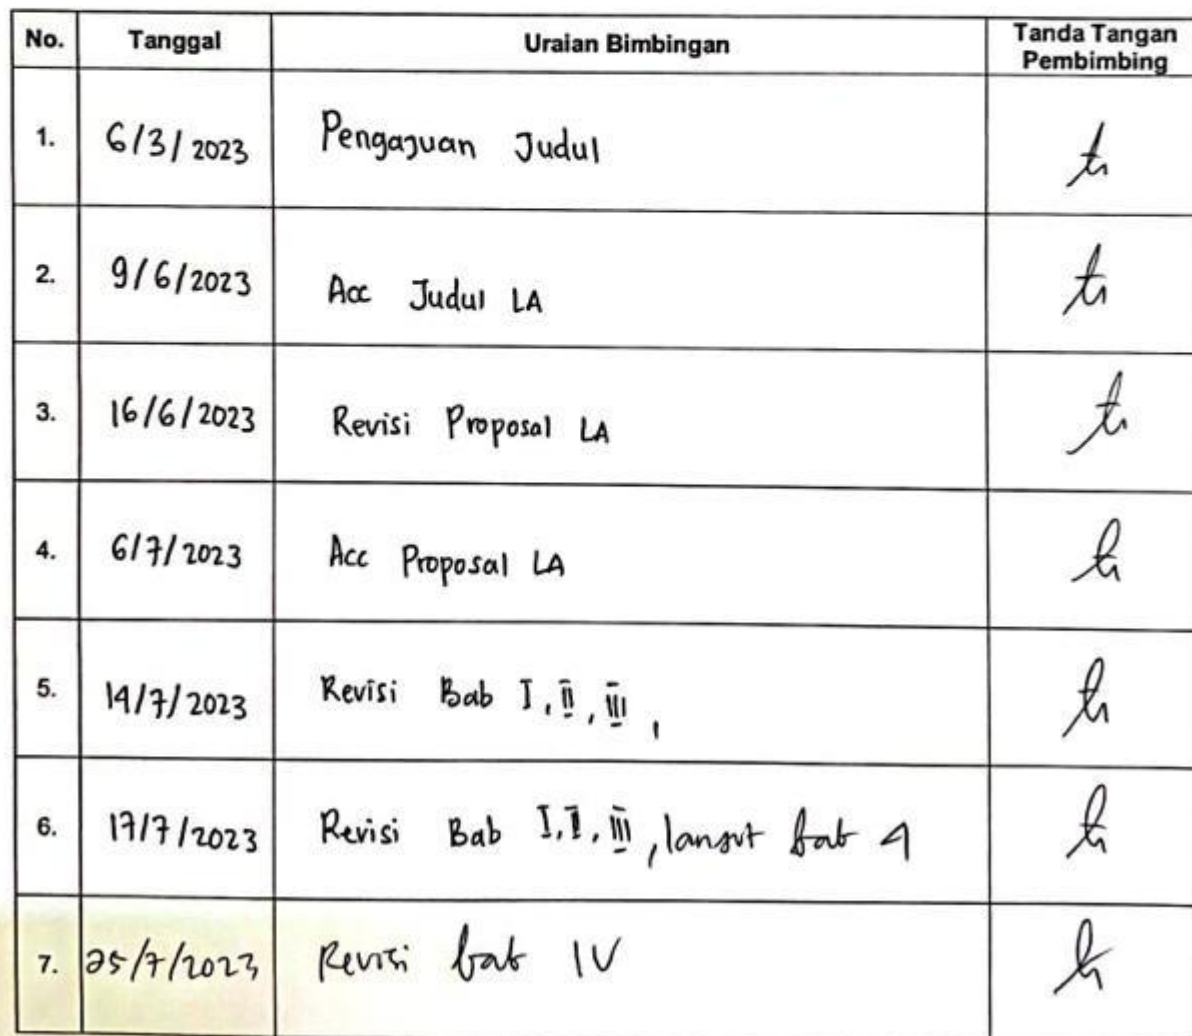 No. Tanggal Uraian Bimbingan Tanda Tangan
Pembimbing
1. 6/3/2023 Pengajuan Judul
2. 9/6/2023 Acc Judul LA
3. 16/6/2023 Revisi Proposal LA
4. 6/7/2023 Acc Proposal LA
5. 14/7/2023 Revisi Bab I, II, III,
6. 17/7/2023 Revisi Bab I, II, III, lanjut bab 4
7. 25/7/2023 Revisi bab IV